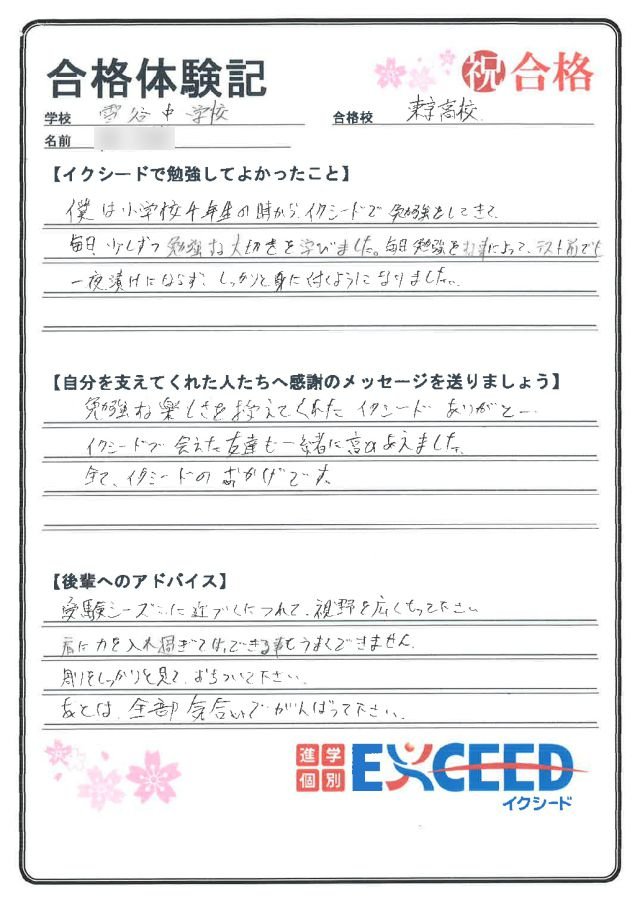 合格体験記
祝 合格
学校 雪谷中学校
合格校 東京高校
名前
【イクシードで勉強してよかったこと】
僕は小学校4年生の時から、イクシードで勉強をしてきて、
毎日、少しずつ勉強する大切さを学びました。毎日勉強をする事によって、テスト前でも
一夜漬けにならず、しっかりと身に付くようになりました。
【自分を支えてくれた人たちへ感謝のメッセージを送りましょう】
勉強する楽しさを教えてくれたイクシード ありがとー
イクシードで会えた友達も一緒に高めあえました。
全て、イクシードのおかげです。
【後輩へのアドバイス】
受験シーズンに近づくにつれて、視野を広くもって下さい
肩に力を入れ過ぎてはできる事もうまくできません。
周りをしっかりと見て、おちついて下さい。
あとは、全部気合いでがんばって下さい。
進学
個別
EXCEED
イクシード